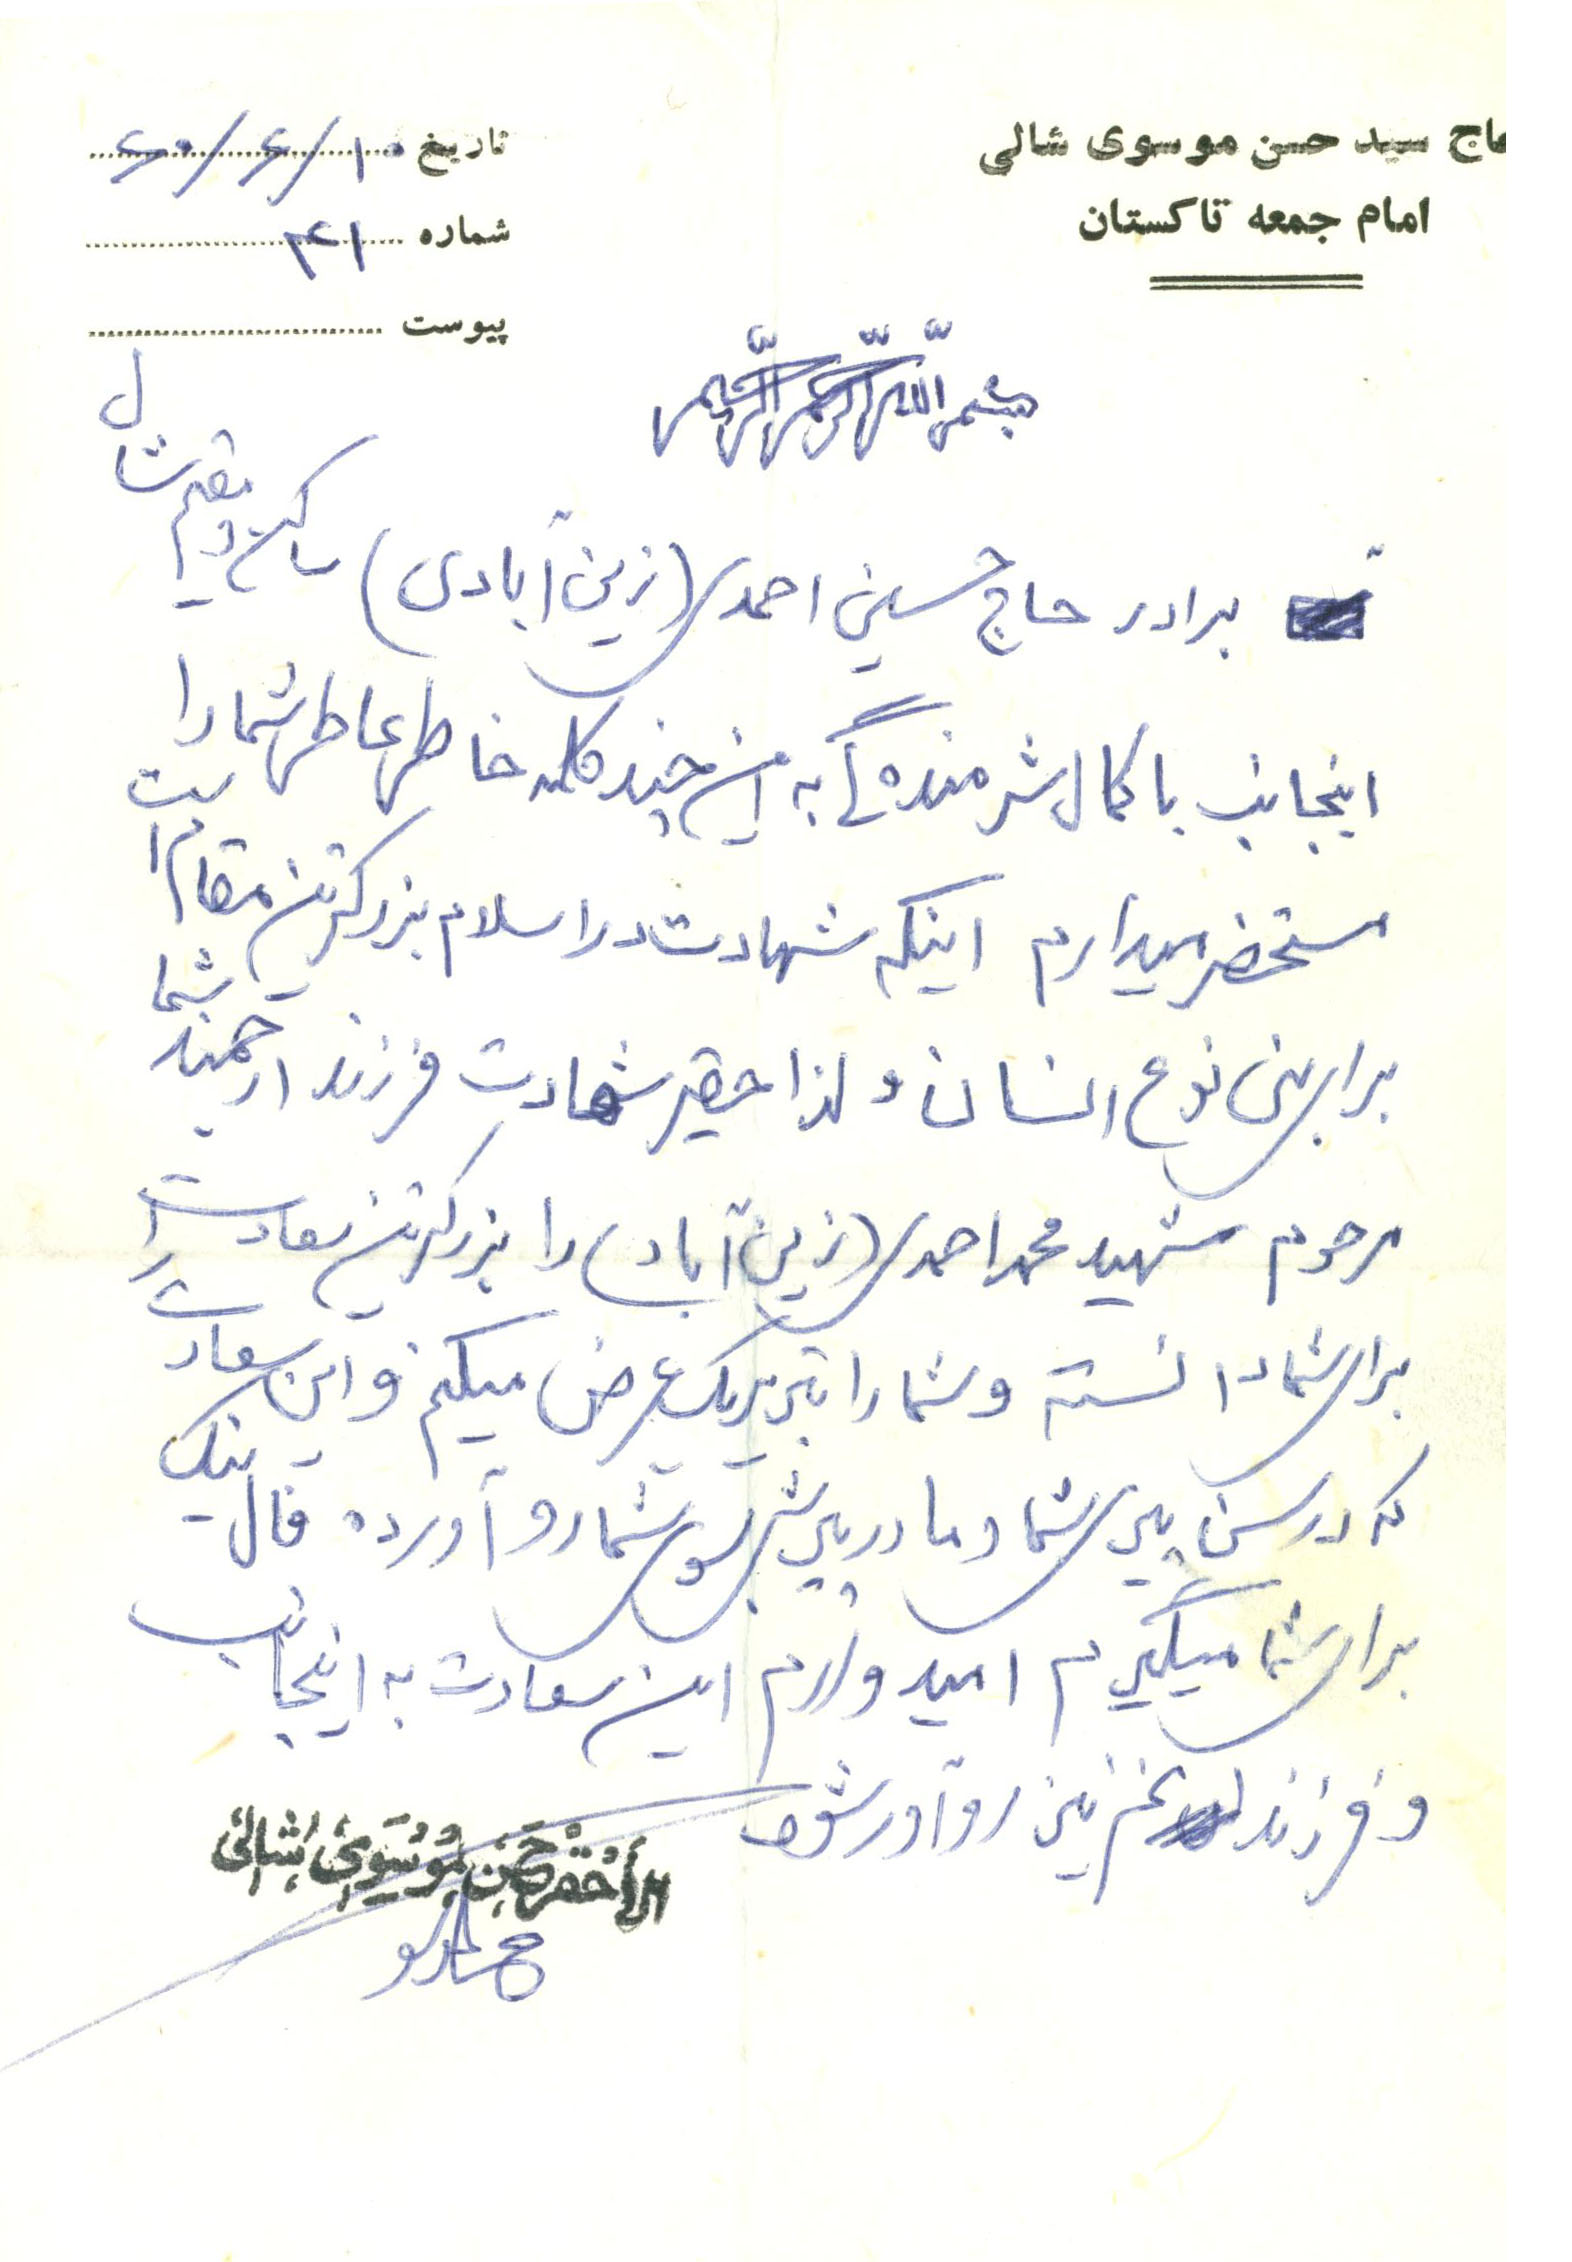 حاج سید حسن موسوی شالی
امام جمعه تاکستان
تاریخ ۶۰/۶/۱۰
شماره ۴۱
پیوست
بسم الله الرحمن الرحیم
برادر حاج حسین احمدی (زین آبادی) ساکن و مقیم شال
اینجانب با کمال شرمنده گی به این چند کلمه خاطر عاطر شما را
مستحضر میدارم اینکه شهادت در اسلام بزرگترین مقام است
برای بنی نوع انسان و لذا حقیر شهادت فرزند ارجمند شما
مرحوم شهید محمد احمدی (زین آبادی) را بزرگترین سعادت را
برای شما دانسته و شما را تبریک عرض میکنم و این سعادت
که در سن پیری شما و مادر پیرش بسوی شما رو آورده فال نیک
برای شما میگیرم امیدوارم این سعادت به اینجانب
و فرزندانم نیز رو آور شود
الأحقر حسن موسوی شالی